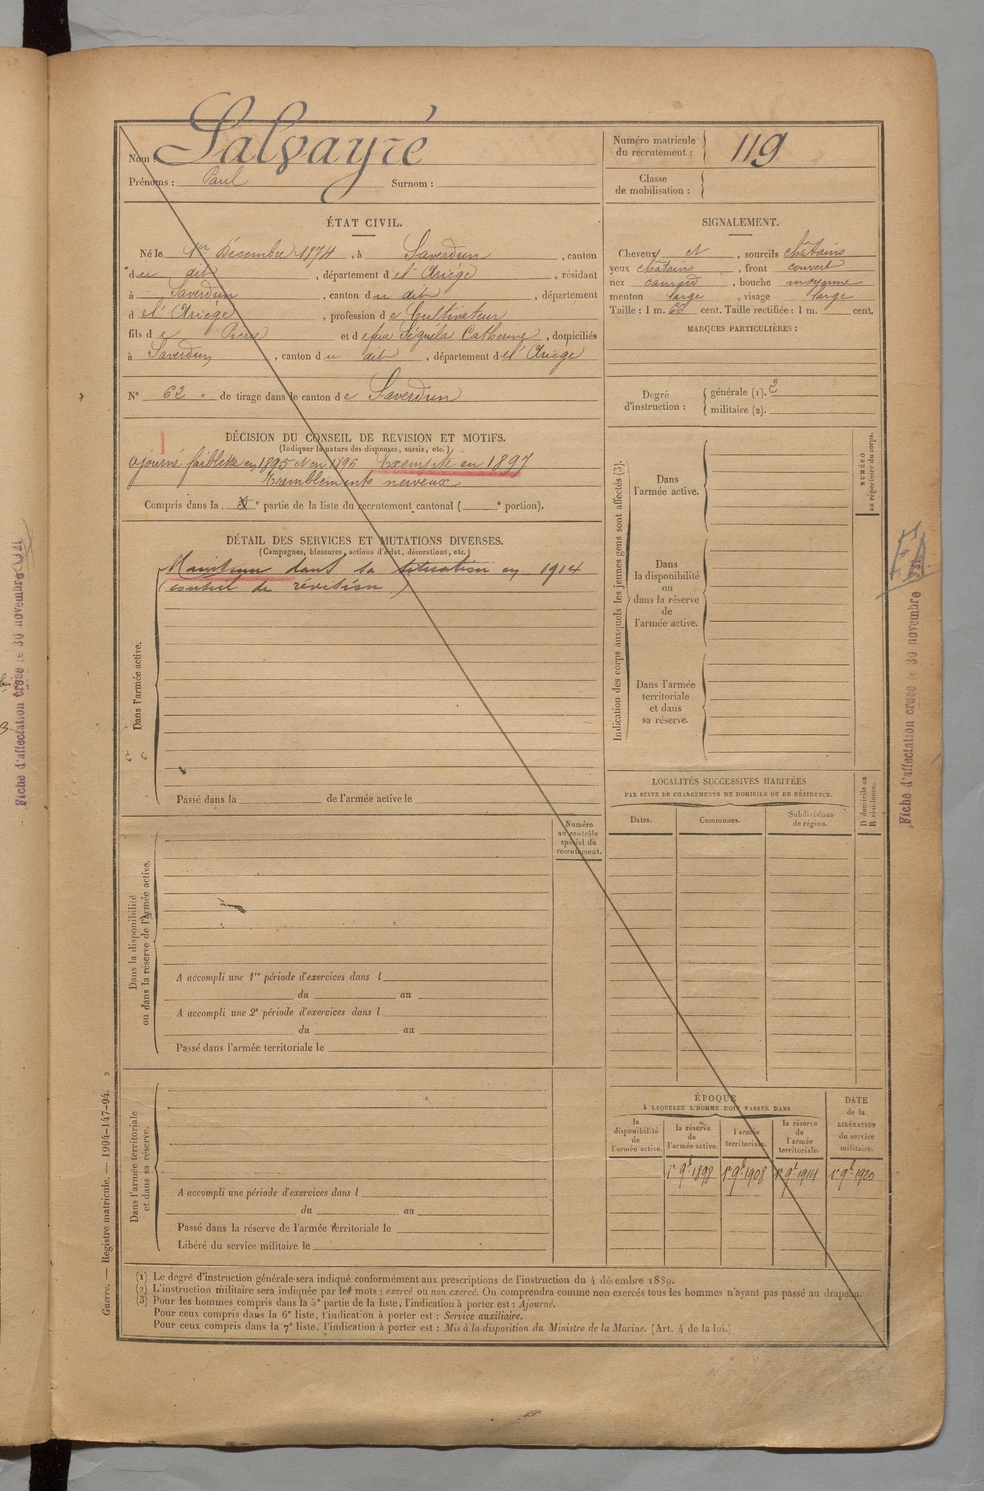 Nom : Salvayre
Prénoms : Paul Surnom :
Numéro matricule du recrutement : 119
Classe de mobilisation :
ÉTAT CIVIL.
Né le 1er Décembre 1874, à Saverdun, canton
du dit, département de l'Ariège, résidant
à Saverdun, canton du dit, département
de l'Ariège, profession de Cultivateur
fils de Pierre et de feue Séguéla Catherine, domiciliés
à Saverdun, canton du dit, département de l'Ariège
N° 62 de tirage dans le canton de Saverdun
SIGNALEMENT.
Cheveux et, sourcils châtains
yeux châtains, front couvert
nez camard, bouche moyenne
menton large, visage large
Taille : 1 m. 66 cent. Taille rectifiée : 1 m. cent.
MARQUES PARTICULIÈRES :
Degré d'instruction : générale (1). 2
militaire (2).
DÉCISION DU CONSEIL DE REVISION ET MOTIFS.
(Indiquer la nature des dispenses, sursis, etc.)
ajourné faiblesse en 1895 et en 1896 Exempté en 1897
Tremblements nerveux
Compris dans la e partie de la liste du recrutement cantonal ( e portion).
DÉTAIL DES SERVICES ET MUTATIONS DIVERSES.
(Campagnes, blessures, actions d'éclat, décorations, etc.)
Maintenu dans sa situation en 1914
(conseil de révision)
Dans l'armée active.
Passé dans la de l'armée active le
Numéro au contrôle spécial du recrutement.
Dans la disponibilité ou dans la réserve de l'armée active.
A accompli une 1re période d'exercices dans l
du au
A accompli une 2e période d'exercices dans l
du au
Passé dans l'armée territoriale le
Dans l'armée territoriale et dans sa réserve.
A accompli une période d'exercices dans l
du au
Passé dans la réserve de l'armée territoriale le
Libéré du service militaire le
Indication des corps auxquels les jeunes gens sont affectés (3).
Dans l'armée active.
Dans la disponibilité ou dans la réserve de l'armée active.
Dans l'armée territoriale et dans sa réserve.
NUMÉRO au répertoire du corps.
LOCALITÉS SUCCESSIVES HABITÉES
PAR SUITE DE CHANGEMENTS DE DOMICILE OU DE RÉSIDENCE.
Dates. Communes. Subdivisions de région.
D domicile ou R résidence.
ÉPOQUE
À LAQUELLE L'HOMME DOIT PASSER DANS
la disponibilité de l'armée active.
la réserve de l'armée active.
l'armée territoriale.
la réserve de l'armée territoriale.
DATE de la LIBÉRATION du service militaire.
1er 9bre 1898 1er 9bre 1908 1er 9bre 1914 1er 9bre 1920
(1) Le degré d'instruction générale sera indiqué conformément aux prescriptions de l'instruction du 4 décembre 1889.
(2) L'instruction militaire sera indiquée par les mots : exercé ou non exercé. On comprendra comme non exercés tous les hommes n'ayant pas passé au drapeau.
(3) Pour les hommes compris dans la 5e partie de la liste, l'indication à porter est : Ajourné.
Pour ceux compris dans la 6e liste, l'indication à porter est : Service auxiliaire.
Pour ceux compris dans la 7e liste, l'indication à porter est : Mis à la disposition du Ministre de la Marine. (Art. 4 de la loi.)
Guerre. — Registre matricule. — 1994-147-94. 2
Fiche d'affectation créée le 30 novembre
Fiche d'affectation créée le 30 novembre